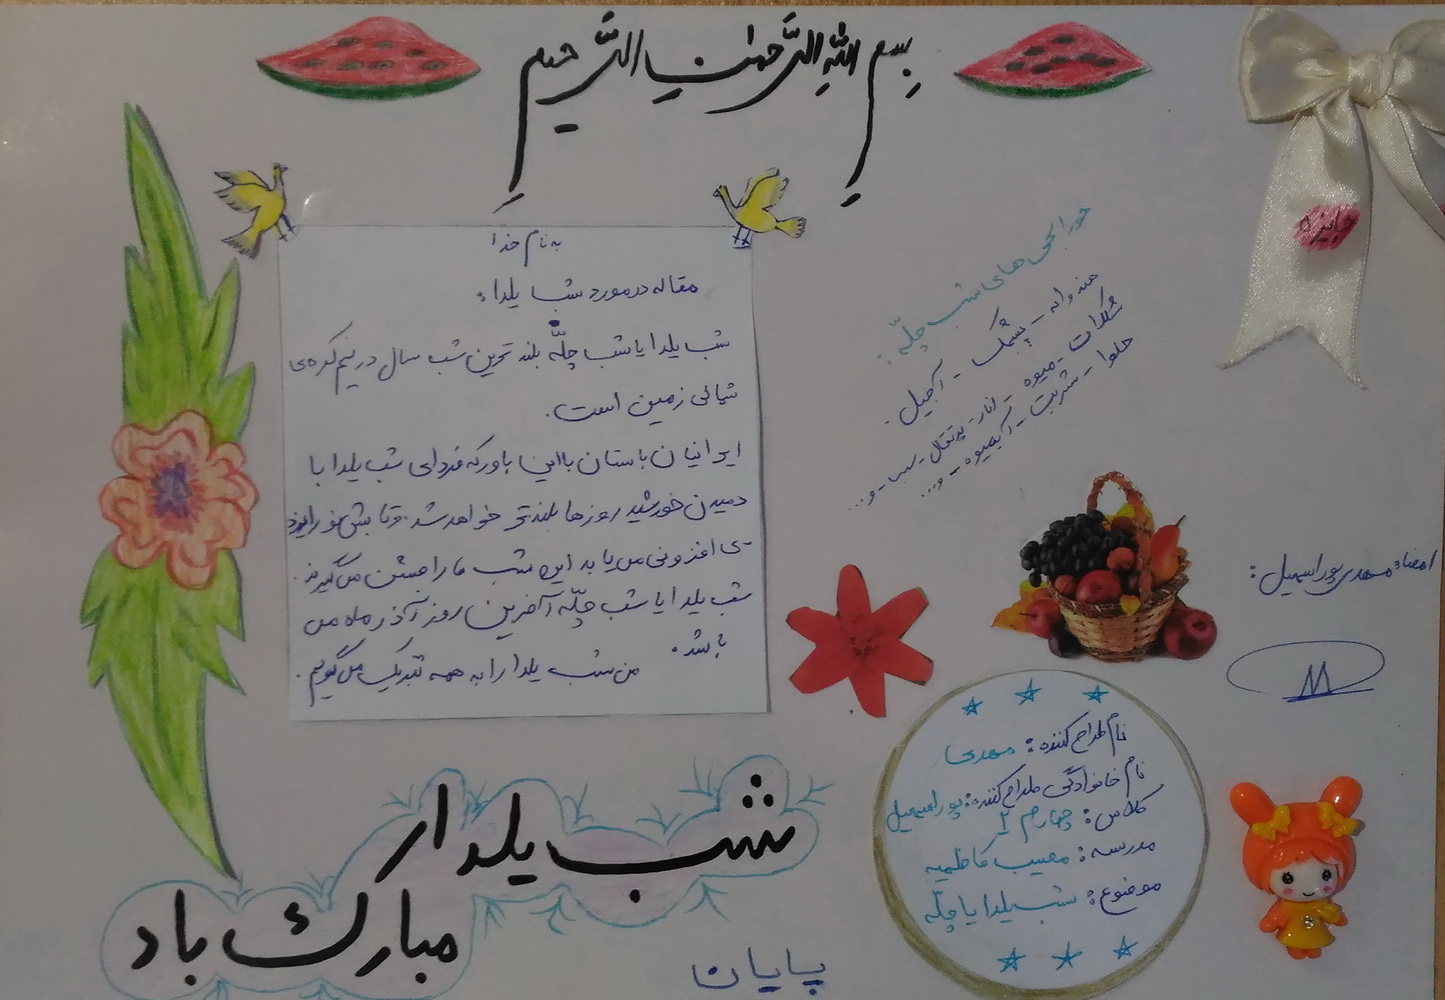 بِسمِ اللهِ الرَّحمانِ الرَّحیمِ
جایزه
به نام خدا
مقاله درمورد شب یلدا:
شب یلدا یا شب چلّه بلند ترین شب سال در نیم کره‌ی
شمالی زمین است.
ایرانیان باستان با این باور که فردای شب یلدا با
دمیدن خورشید روزها بلند تر خواهد شد. و تابش نور ایزد
ی افزونی می یابد این شب ما را جشن می گیرند.
شب یلدا یا شب چلّه آخرین روز آذر ماه می
باشد. من شب یلدا را به همه تبریک می گویم.
خوراکی های شب چلّه:
هندوانه - پشمک - آجیل.
شکلات - میوه - انار - پرتقال - سیب - و...
حلوا - شربت - آبمیوه - و...
امضاء مهدی پوراسمعیل:
M
نام طراح کننده: مهدی
نام خانوادگی طراح کننده: پوراسمعیل
کلاس: چهارم ۲
مدرسه: مصیب کاظمیه
موضوع: شب یلدا یا چلّه
شب یلدا ر
مبارک باد
پایان